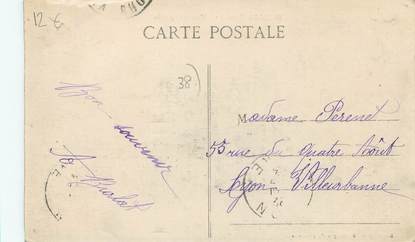 12 €
CARTE POSTALE
38
Bon
souvenir
Madame Perenet
55 rue du quatre Août
Lyon Villeurbanne